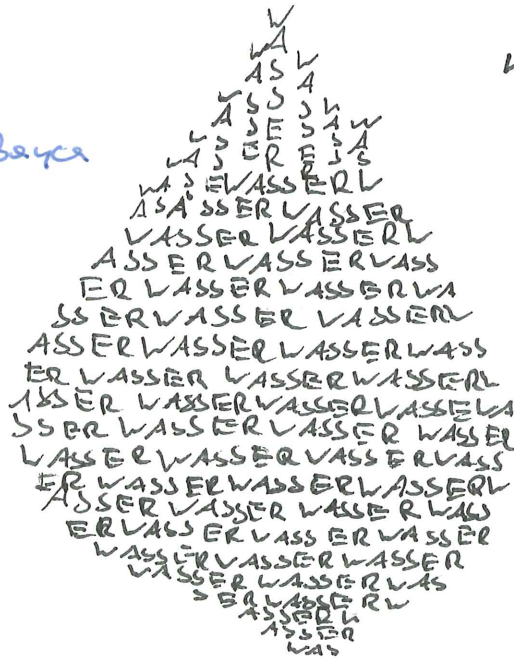 W
WA
ASW
ASA
WSSW
ASESAW
WSERESA
WASSERES
WASEWASSERW
ASASSERWASSER
WASSER WASSERW
ASSERWASSERWASS
ER WASSERWASSERWA
SSERWASSER WASSERW
ASSERWASSERWASSERWASS
ER WASSER WASSERWASSERW
ASSER WASSERWASSERWASSEWA
SSER WASSERWASSER WASSER
WASSERWASSERWASSERWASS
ER WASSERWASSERWASSERW
ASSERWASSERWASSERWASS
ERWASSERWASSERWASSER
WASSERWASSERWASSER
WASSERWASSERWAS
SERWASSERW
ASSERW
ASSER
WAS